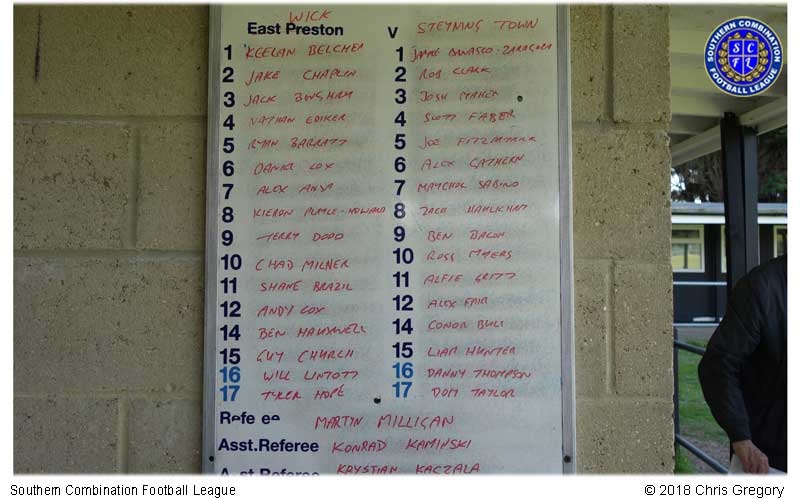 WICK
East Preston V STEYNING TOWN
1 KEELAN BELCHER 1 JAMIE
2 JAKE CHAPLIN 2 ROB CLARK
3 JACK BINGHAM 3 JOSH MAHER
4 NATHAN EDIKER 4 SCOTT FABER
5 RYAN BARRATT 5 JOE FITZMAURICE
6 DANIEL COX 6 ALEX GATHERN
7 ALEX 7 MAYCHOL SABINO
8 KIERON - HOWARD 8 ZACH
9 TERRY DODD 9 BEN BACON
10 CHAD MILNER 10 ROSS MYERS
11 SHANE BRAZIL 11 ALFIE GRITT
12 ANDY COX 12 ALEX FAIR
14 BEN 14 CONOR BULL
15 GUY CHURCH 15 LIAM HUNTER
16 WILL LINTOTT 16 DANNY THOMPSON
17 TYLER HOPE 17 DOM TAYLOR
Refe ee MARTYN MILLIGAN
Asst.Referee KONRAD KAMINSKI
A st.Referee KRYSTIAN KACZALA
SOUTHERN COMBINATION
SCFL
FOOTBALL LEAGUE
Southern Combination Football League © 2018 Chris Gregory